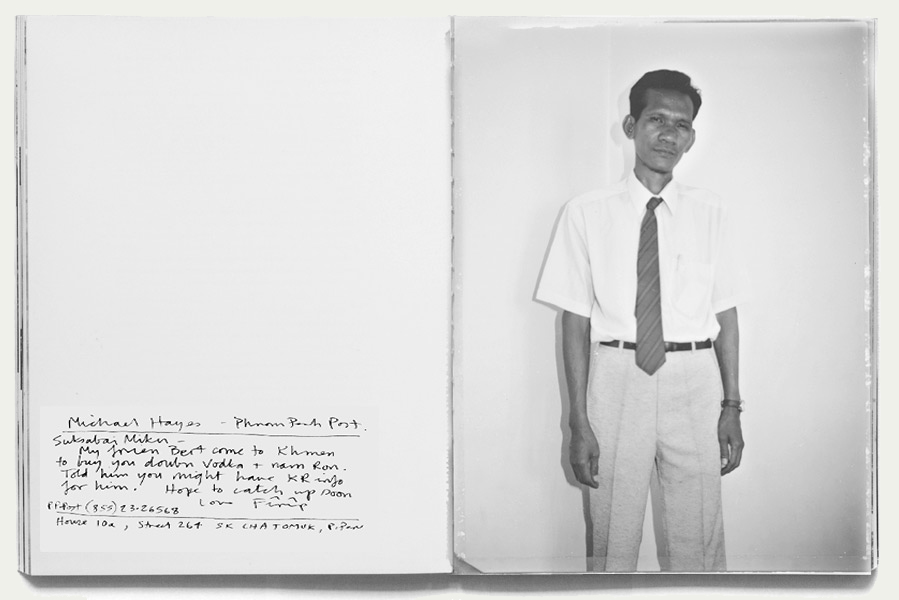 Michael Hayes - Phnom Penh Post.
Suksabai Mike -
My friend Bert come to Khmer
to buy you double Vodka + nam Ron.
Told him you might have KR info
for him. Hope to catch up soon
Love
P.P. Post (855) 23-26568
House 10a, Street 264 SK CHATOMUK, P. Penh